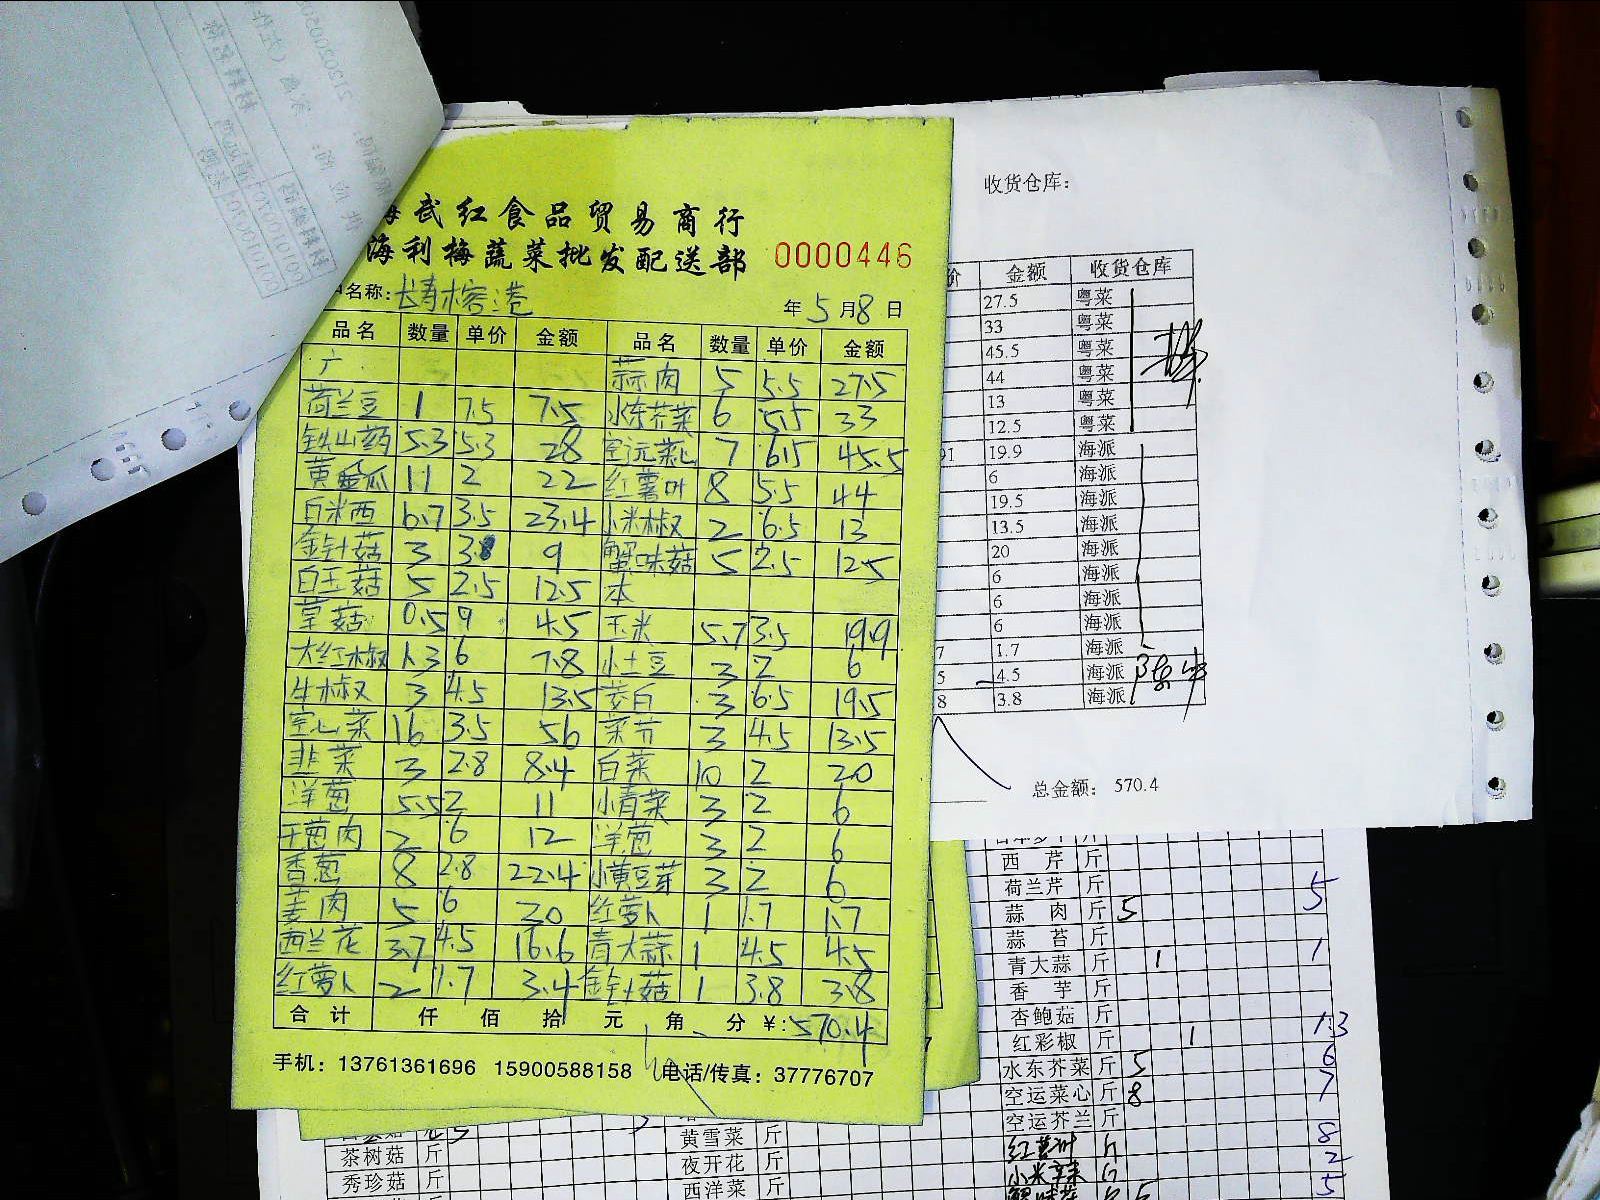 武红食品贸易商行
海利梅蔬菜批发配送部 0000446
名称: 年5月8日
品名 数量 单价 金额 品名 数量 单价 金额
广 蒜肉 5 5.5 27.5
荷兰豆 1 7.5 7.5 水东芥菜 6 5.5 33
铁山药 5.3 5.3 28 空运菜心 7 6.5 45.5
黄蛋瓜 11 2 22 红薯叶 8 5.5 44
白米西 6.7 3.5 23.4 小米椒 2 6.5 13
金针菇 3 9 蟹味菇 5 2.5 12.5
白玉菇 5 2.5 12.5 本
草菇 0.5 9 4.5 玉米 5.7 3.5 19.9
大红椒 1.3 6 7.8 小土豆 3 2 6
牛椒 3 4.5 13.5 茭白 3 6.5 19.5
空心菜 16 3.5 56 菜芥 3 4.5 13.5
韭菜 3 2.8 8.4 白菜 10 2 20
洋葱 5.5 2 11 小青菜 3 2 6
干葱肉 2 6 12 洋葱 3 2 6
香葱 8 2.8 22.4 小黄豆芽 3 2 6
姜肉 5 6 30 红萝卜 1 1.7 1.7
西兰花 3.7 4.5 16.6 青大蒜 1 4.5 4.5
红萝卜 2 1.7 3.4 金针菇 1 3.8 3.8
合计 仟 佰 拾 元 角 分 ¥:570.4
手机：13761361696 15900588158 电话/传真：37776707
收货仓库：
价 金额 收货仓库
27.5 粤菜
33 粤菜
45.5 粤菜
44 粤菜
13 粤菜
12.5 粤菜
91 19.9 海派
6 海派
19.5 海派
13.5 海派
20 海派
6 海派
6 海派
6 海派
7 1.7 海派
5 4.5 海派
8 3.8 海派
总金额： 570.4
西芹 斤
荷兰芹 斤 5
蒜肉 斤 5 5
蒜苔 斤
青大蒜 斤 1 1
香芋 斤
杏鲍菇 斤
红彩椒 斤 1 1.3
水东芥菜 斤 5 6
空运菜心 斤 8 7
空运芥兰 斤
8
小米辣 2
5
茶树菇 斤
秀珍菇 斤
黄雪菜 斤
夜开花 斤
西洋菜 斤